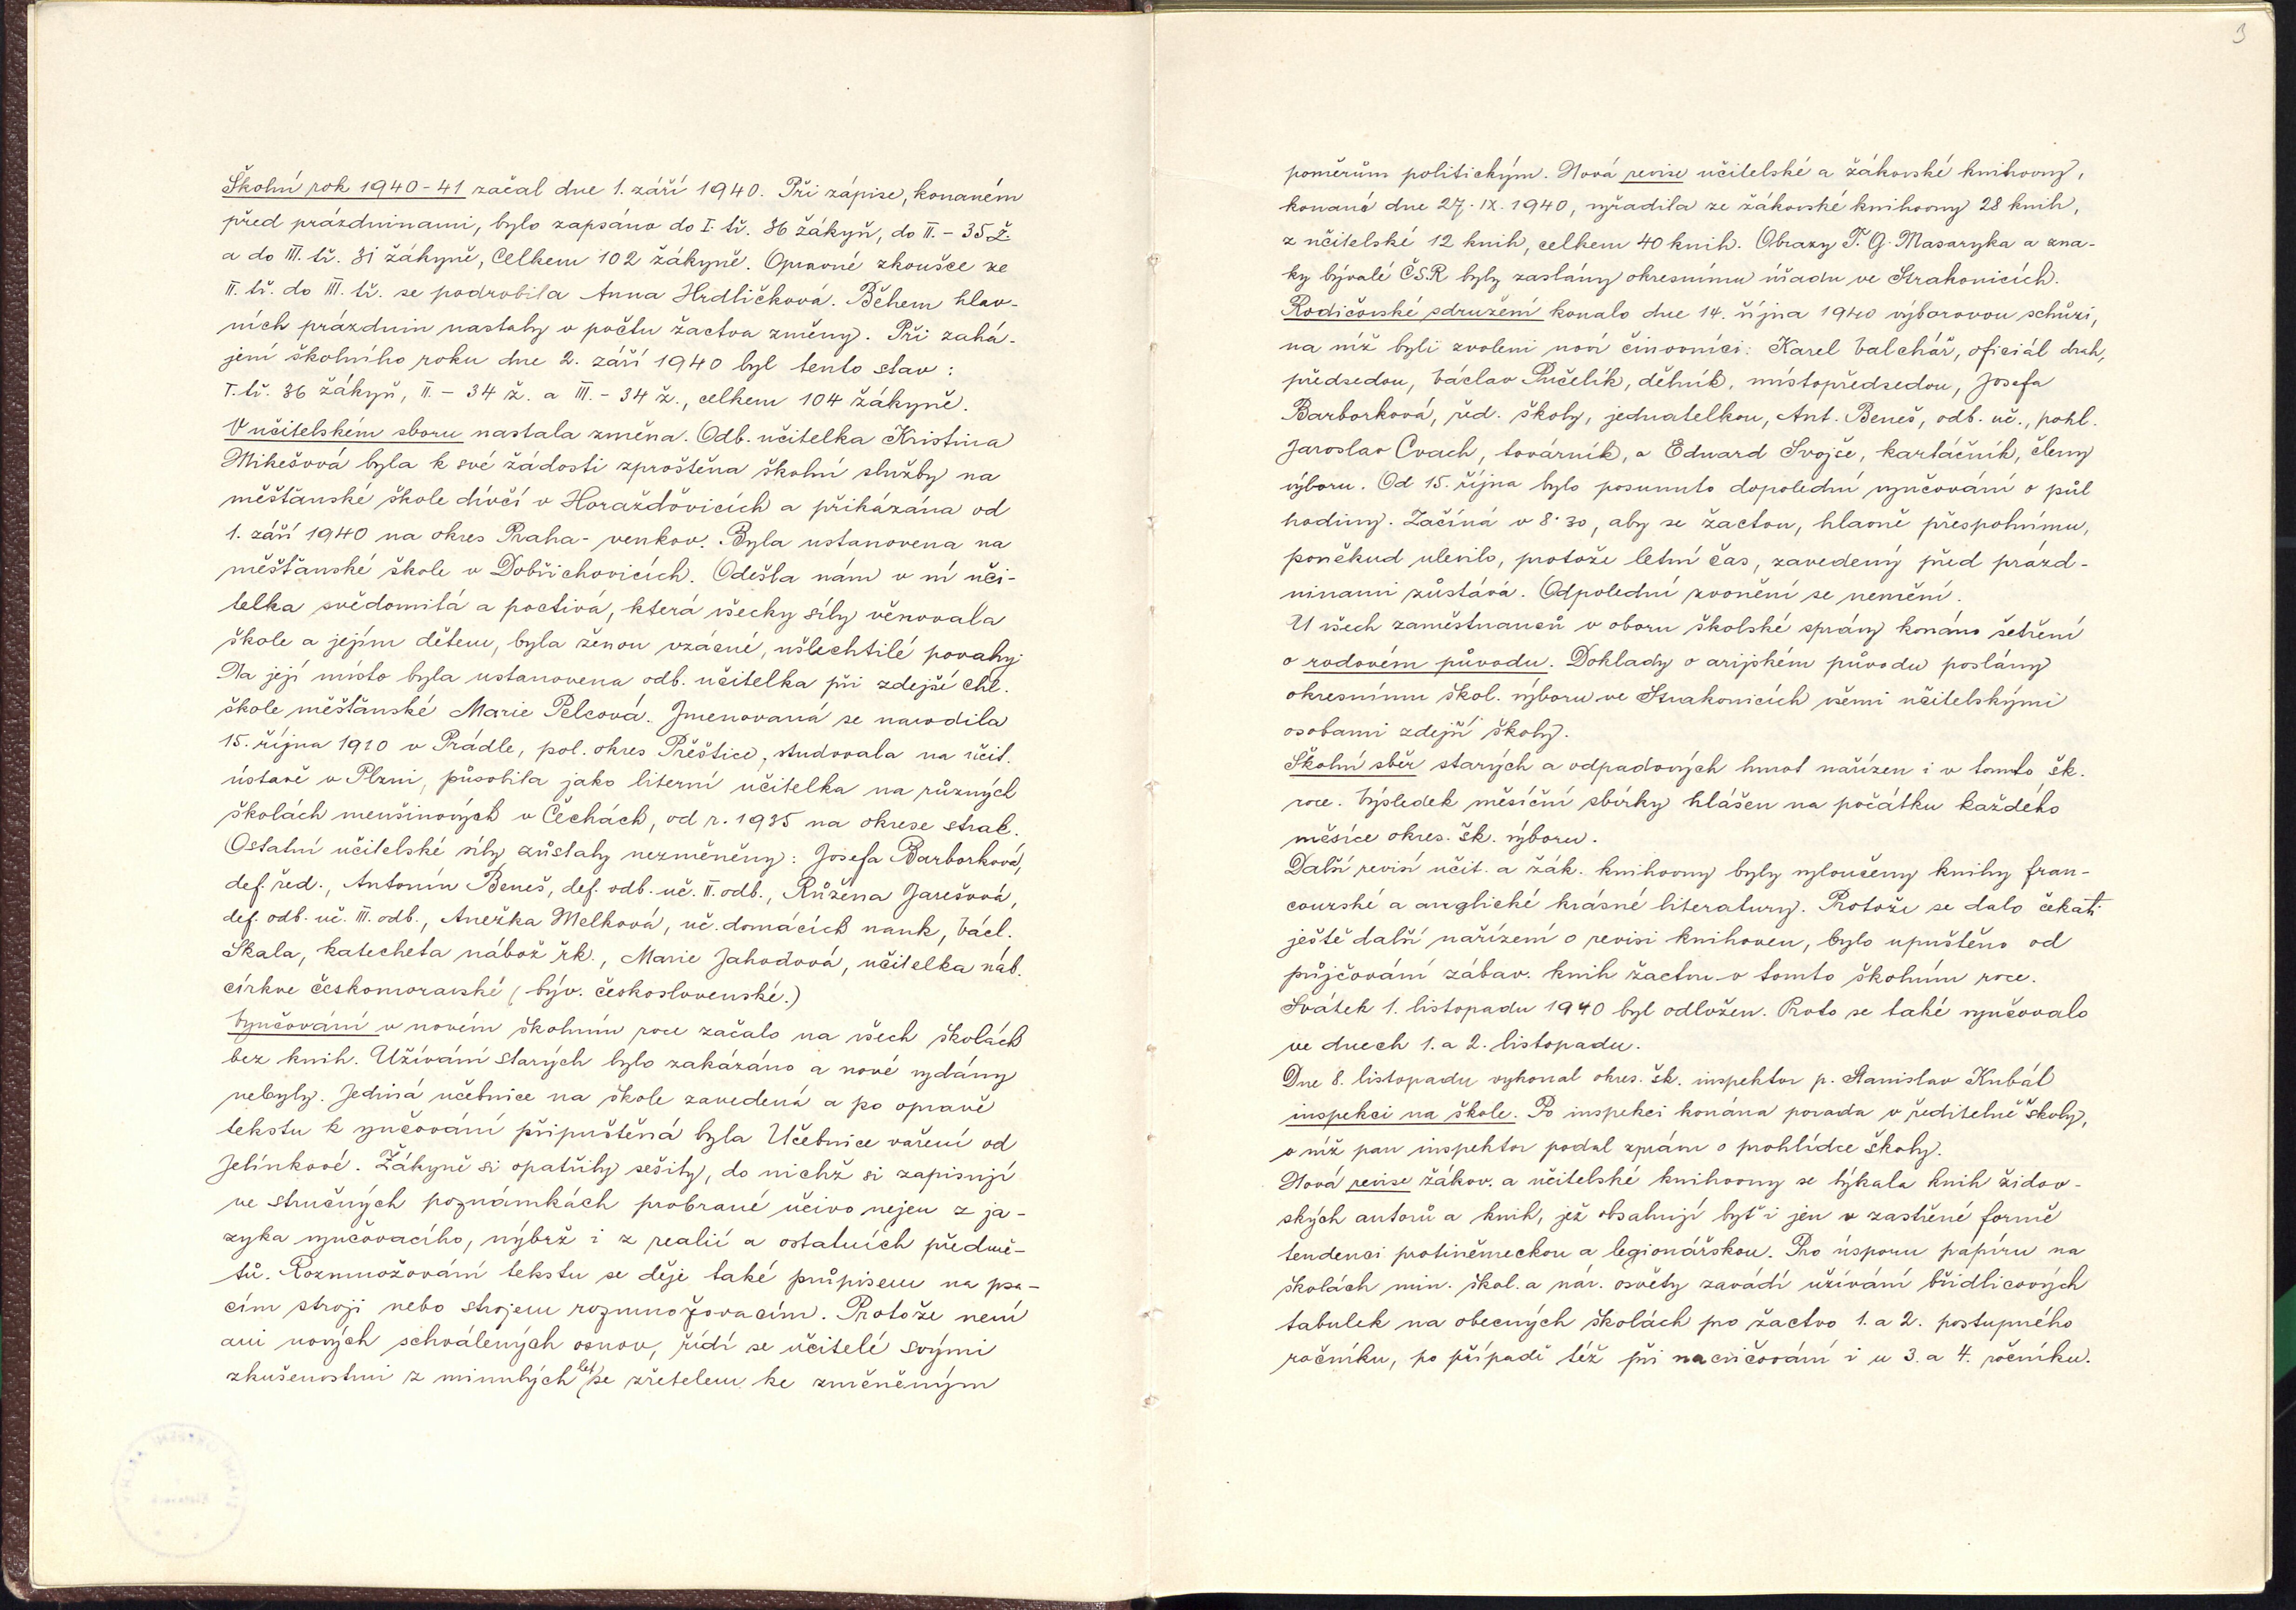 3
Školní rok 1940-41 začal dne 1. září 1940. Při zápise, konaném
před prázdninami, bylo zapsáno do I. tř. 36 žákyň, do II. - 35 ž.
a do III. tř. 31 žákyně, Celkem 102 žákyně. Opravné zkoušce ze
II. tř. do III. tř. se podrobila Anna Hrdličková. Během hlav-
ních prázdnin nastaly v počtu žactva změny. Při zahá-
jení školního roku dne 2. září 1940 byl tento stav:
I. tř. 36 žákyň, II. - 34 ž. a III. - 34 ž., celkem 104 žákyně.
V učitelském sboru nastala změna. Odb. učitelka Kristina
Mikešová byla k své žádosti zproštěna školní služby na
měšťanské škole dívčí v Horažďovicích a přikázána od
1. září 1940 na okres Praha-venkov. Byla ustanovena na
měšťanské škole v Dobřichovicích. Odešla nám v ní uči-
telka svědomitá a poctivá, která všecky síly věnovala
škole a jejím dětem, byla ženou vzácné, ušlechtilé povahy.
Na její místo byla ustanovena odb. učitelka při zdejší chl.
škole měšťanské Marie Pelcová. Jmenovaná se narodila
15. října 1910 v Prádle, pol. okres Přeštice, studovala na učit.
ústavě v Plzni, působila jako literní učitelka na různých
školách menšinových v Čechách, od r. 1935 na okrese strak.
Ostatní učitelské síly zůstaly nezměněny: Josefa Barborková,
def. řed., Antonín Beneš, def. odb. uč. II. odb., Růžena Jarešová,
def. odb. uč. III. odb., Anežka Melková, uč. domácích nauk, Václ.
Skala, katecheta nábož řk., Marie Jahodová, učitelka náb.
církve českomoravské (býv. československé.)
Vyučování v novém školním roce začalo na všech školách
bez knih. Užívání starých bylo zakázáno a nové vydány
nebyly. Jediná učebnice na škole zavedená a po opravě
tekstu k vyučování připuštěná byla Učebnice vaření od
Jelínkové. Žákyně si opatřily sešity, do nichž si zapisují
ve stručných poznámkách probrané učivo nejen z ja-
zyka vyučovacího, nýbrž i z realií a ostatních předmě-
tů. Rozmnožování tekstu se děje také průpisem na psa-
cím stroji nebo strojem rozmnožovacím. Protože není
ani nových schválených osnov, řídí se učitelé svými
zkušenostmi z minulých let se zřetelem ke změněným
poměrům politickým. Nová revise učitelské a žákovské knihovny,
konaná dne 27. IX. 1940, vyřadila ze žákovské knihovny 28 knih,
z učitelské 12 knih, celkem 40 knih. Obrazy T. G. Masaryka a zna-
ky bývalé ČSR byly zaslány okresnímu úřadu ve Strakonicích.
Rodičovské sdružení konalo dne 14. října 1940 výborovou schůzi,
na níž byli zvoleni noví činovníci: Karel Valchář, oficiál drah,
předsedou, Václav Pučelík, dělník, místopředsedou, Josefa
Barborková, řed. školy, jednatelkou, Ant. Beneš, odb. uč., pokl.
Jaroslav Cvach, továrník, a Eduard Svojše, kartáčník, členy
výboru. Od 15. října bylo posunuto dopolední vyučování o půl
hodiny. Začíná v 8·30, aby se žactvu, hlavně přespolnímu,
poněkud ulevilo, protože letní čas, zavedený před prázd-
ninami zůstává. Odpolední zvonění se nemění.
U všech zaměstnanců v oboru školské správy konáno šetření
o rodovém původu. Doklady o arijském původu poslány
okresnímu škol. výboru ve Strakonicích všemi učitelskými
osobami zdejší školy.
Školní sběr starých a odpadových hmot nařízen i v tomto šk.
roce. Výsledek měsíční sbírky hlášen na počátku každého
měsíce okres. šk. výboru.
Další revisí učit. a žák. knihovny byly vyloučeny knihy fran-
couzské a anglické krásné literatury. Protože se dalo čekati
ještě další nařízení o revisi knihoven, bylo upuštěno od
půjčování zábav. knih žactvu v tomto školním roce.
Svátek 1. listopadu 1940 byl odložen. Proto se také vyučovalo
ve dnech 1. a 2. listopadu.
Dne 8. listopadu vykonal okres. šk. inspektor p. Stanislav Kubál
inspekci na škole. Po inspekci konána porada v ředitelně školy,
v níž pan inspektor podal zprávu o prohlídce školy.
Nová revise žákov. a učitelské knihovny se týkala knih židov-
ských autorů a knih, jež obsahují byť i jen v zastřené formě
tendenci protiněmeckou a legionářskou. Pro úsporu papíru na
školách min. škol. a nár. osvěty zavádí užívání břidlicových
tabulek na obecných školách pro žactvo 1. a 2. postupného
ročníku, po případě též při nacvičování i u 3. a 4. ročníku.